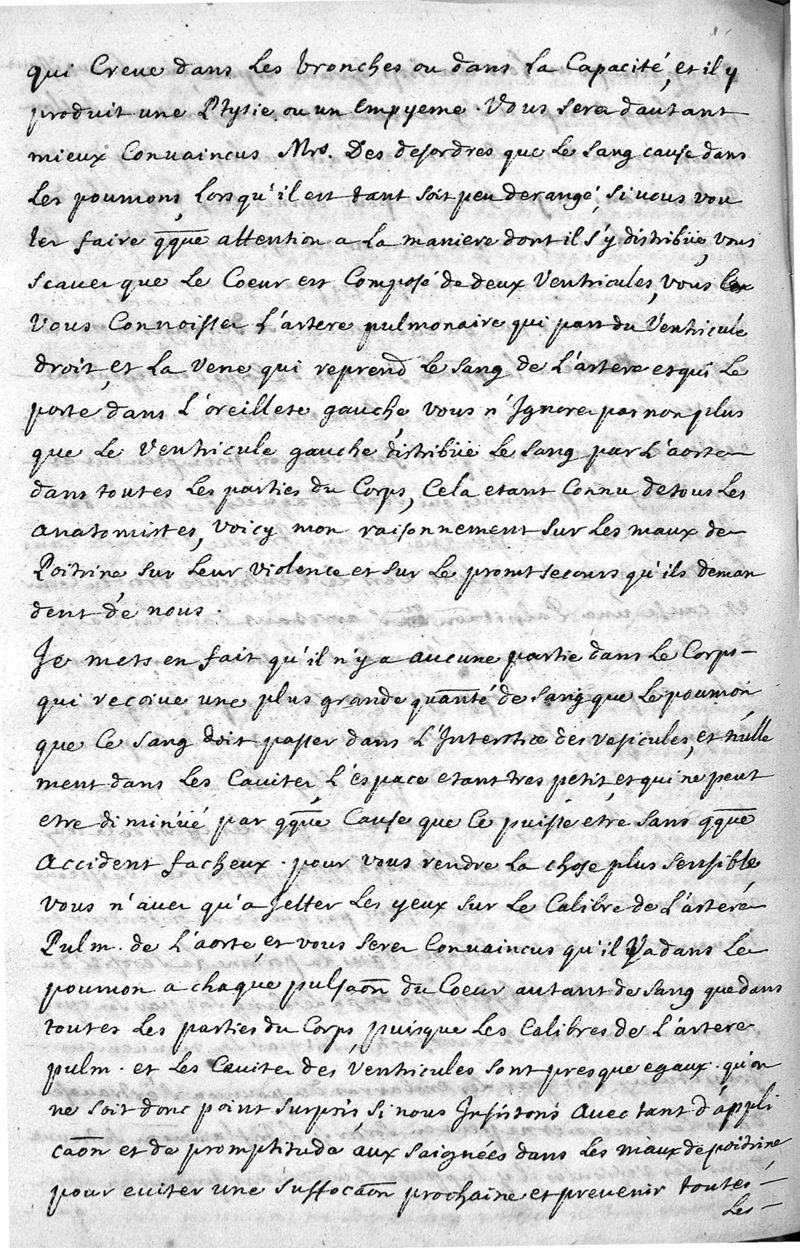 qui Creve dans les bronches ou dans la Capacité, et il y
produit une Ptysie, ou un Empyeme. Vous serez dautant
mieux Convaincus Mrs. Des desordres que le sang cause dans
les poumons, lorsqu'il est tant soit peu derangé, si vous vou
lez faire qque attention a la maniere dont il s'y distribüe, vous
scavez que le Coeur est Composé de deux Ventricules, vous
vous Connoissez l'artere pulmonaire qui part du Ventricule
droit, et la Vene qui reprend le sang de l'artere et qui le
porte dans l'oreillete gauche, vous n'Ignorez pas non plus
que le Ventricule gauche distribüe le sang par l'aorte
dans toutes les parties du Corps, Cela etant Connu de tous les
anatomistes, voicy mon raisonnement sur les maux de
Poitrine sur leur violence et sur le promt secours qu'ils deman
dent de nous.
Je mets en fait qu'il n'y a aucune partie dans le Corps
qui recoive une plus grande quantité de sang que le poumon,
que Ce sang doit passer dans l'Interstice des vesicules, et nulle
ment dans les Cavitez l'espace etant tres petit, et qui ne peut
etre diminüé par qque Cause que Ce puisse etre sans qque
accident facheux. pour vous rendre la chose plus sensible
vous n'avez qu'a Jetter les yeux sur le Calibre de l'artere
Pulm. de l'aorte, et vous serez Convaincus qu'il Ya dans le
poumon a chaque pulsaon du Coeur autant de sang que dans
toutes les parties du Corps, puisque les Calibres de l'artere
pulm. et les Cavitez des Ventricules sont presque egaux. qu'on
ne soit donc point surpris, si nous Insistons avec tant d'appli
caon et de promptitude aux saignées dans les maux de poitrine
pour eviter une suffocaon prochaine et prevenir toutes
les